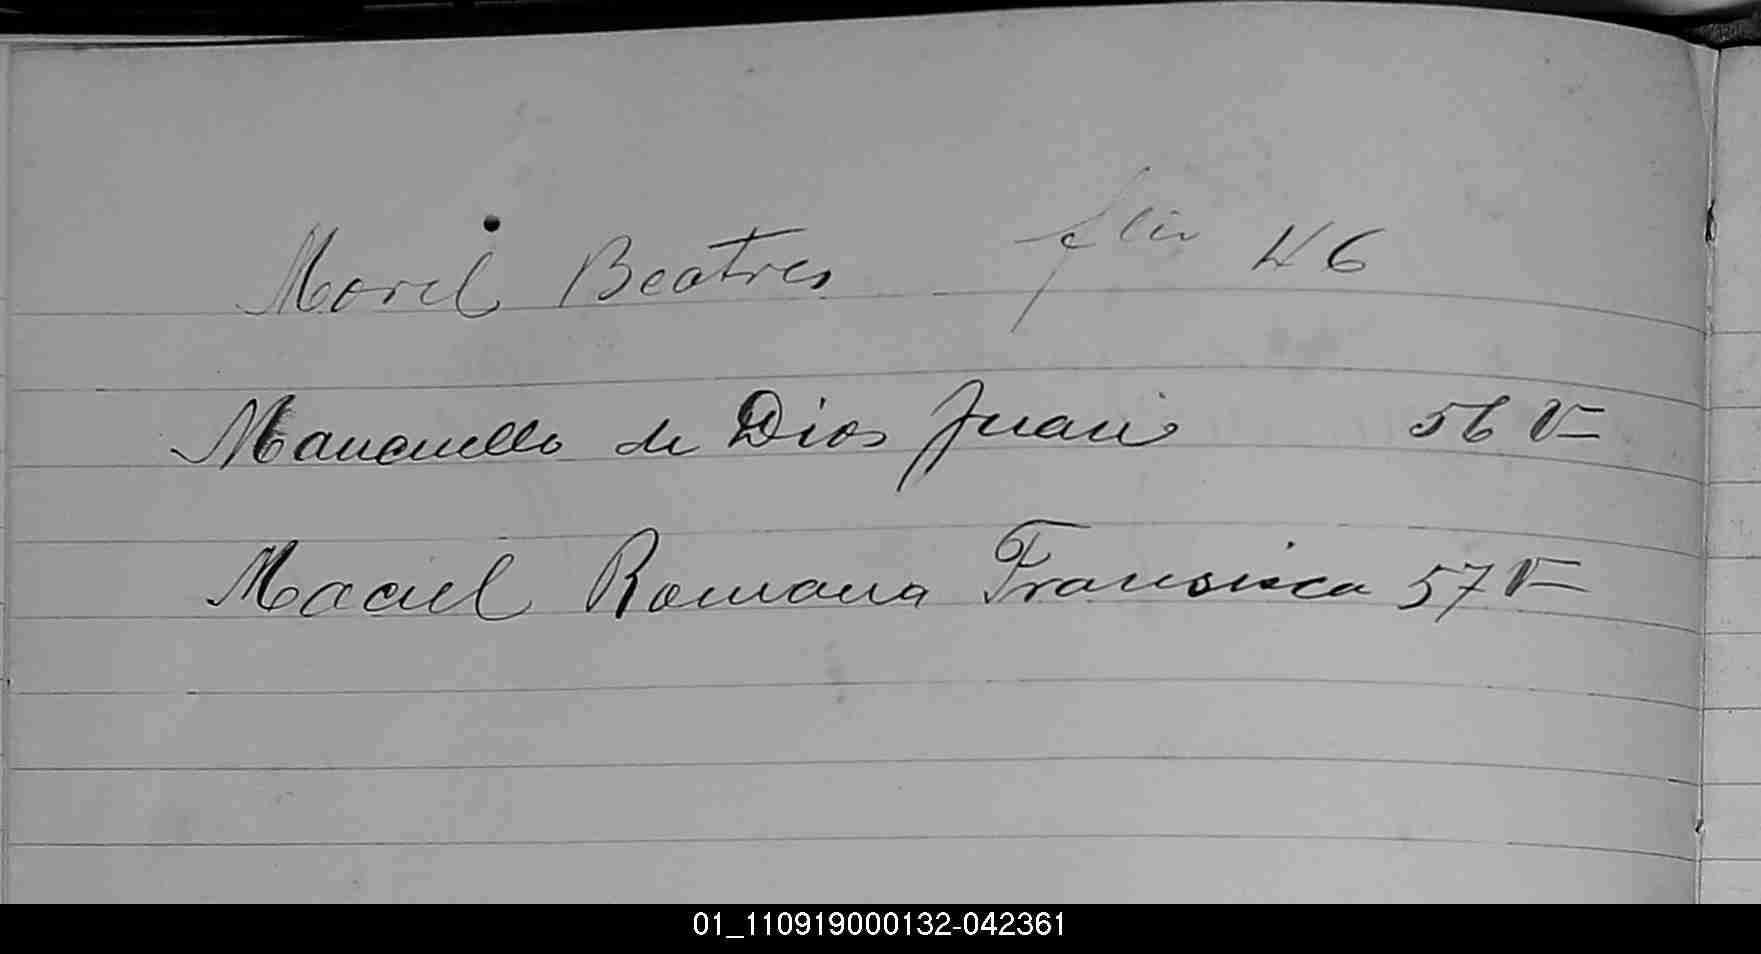 Morel Beatres folio 46
Mananello de Dios Juan 56 V
Maciel Romana Fransisca 57 V
01_110919000132-042361